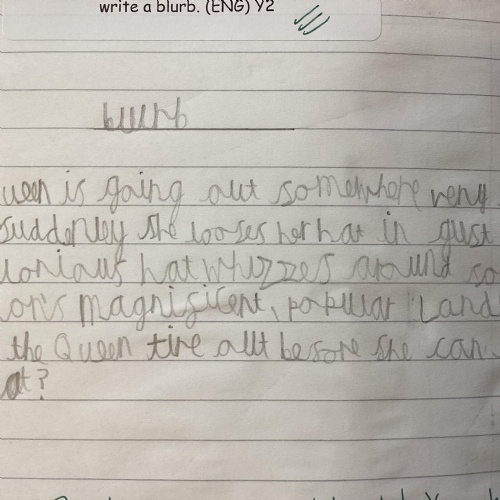 write a blurb. (ENG) Y2
blurb
ueen is going out somewhere very
suddenley she looses her hat in gust
lorious hat whizzes around so
on's magnificent, popular Land
the Queen tire out before she can
at?